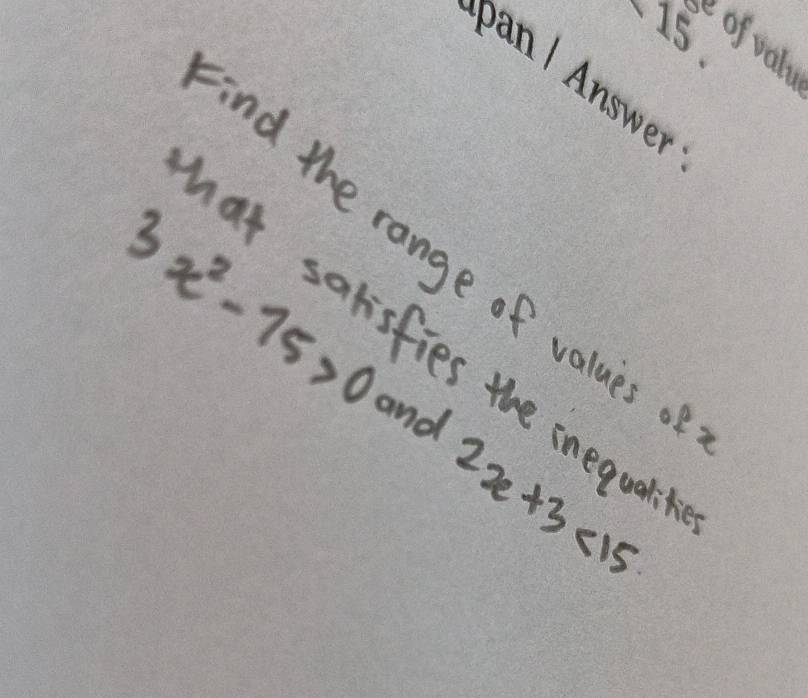 ge of value
< 15.
apan / Answer :
Find the range of values of x
that satisfies the inequalities
3x² - 75 > 0 and 2x + 3 < 15.